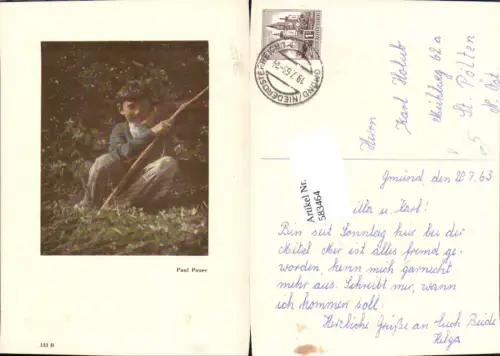 Paul Pauer
133 B
GMÜND
Herrn
Karl Holub
Mühlweg 62a
St. Pölten
N. Öst.
5
Artikel Nr.
583464
Gmünd, den 20.7.63
illa u. Karl!
Bin seit Sonntag hier bei der
Mitzl. Mir ist alles fremd ge-
worden, kenn mich garnicht
mehr aus. Schreibt mir, wann
ich kommen soll.
Herzliche Grüße an Euch Beide
Helga